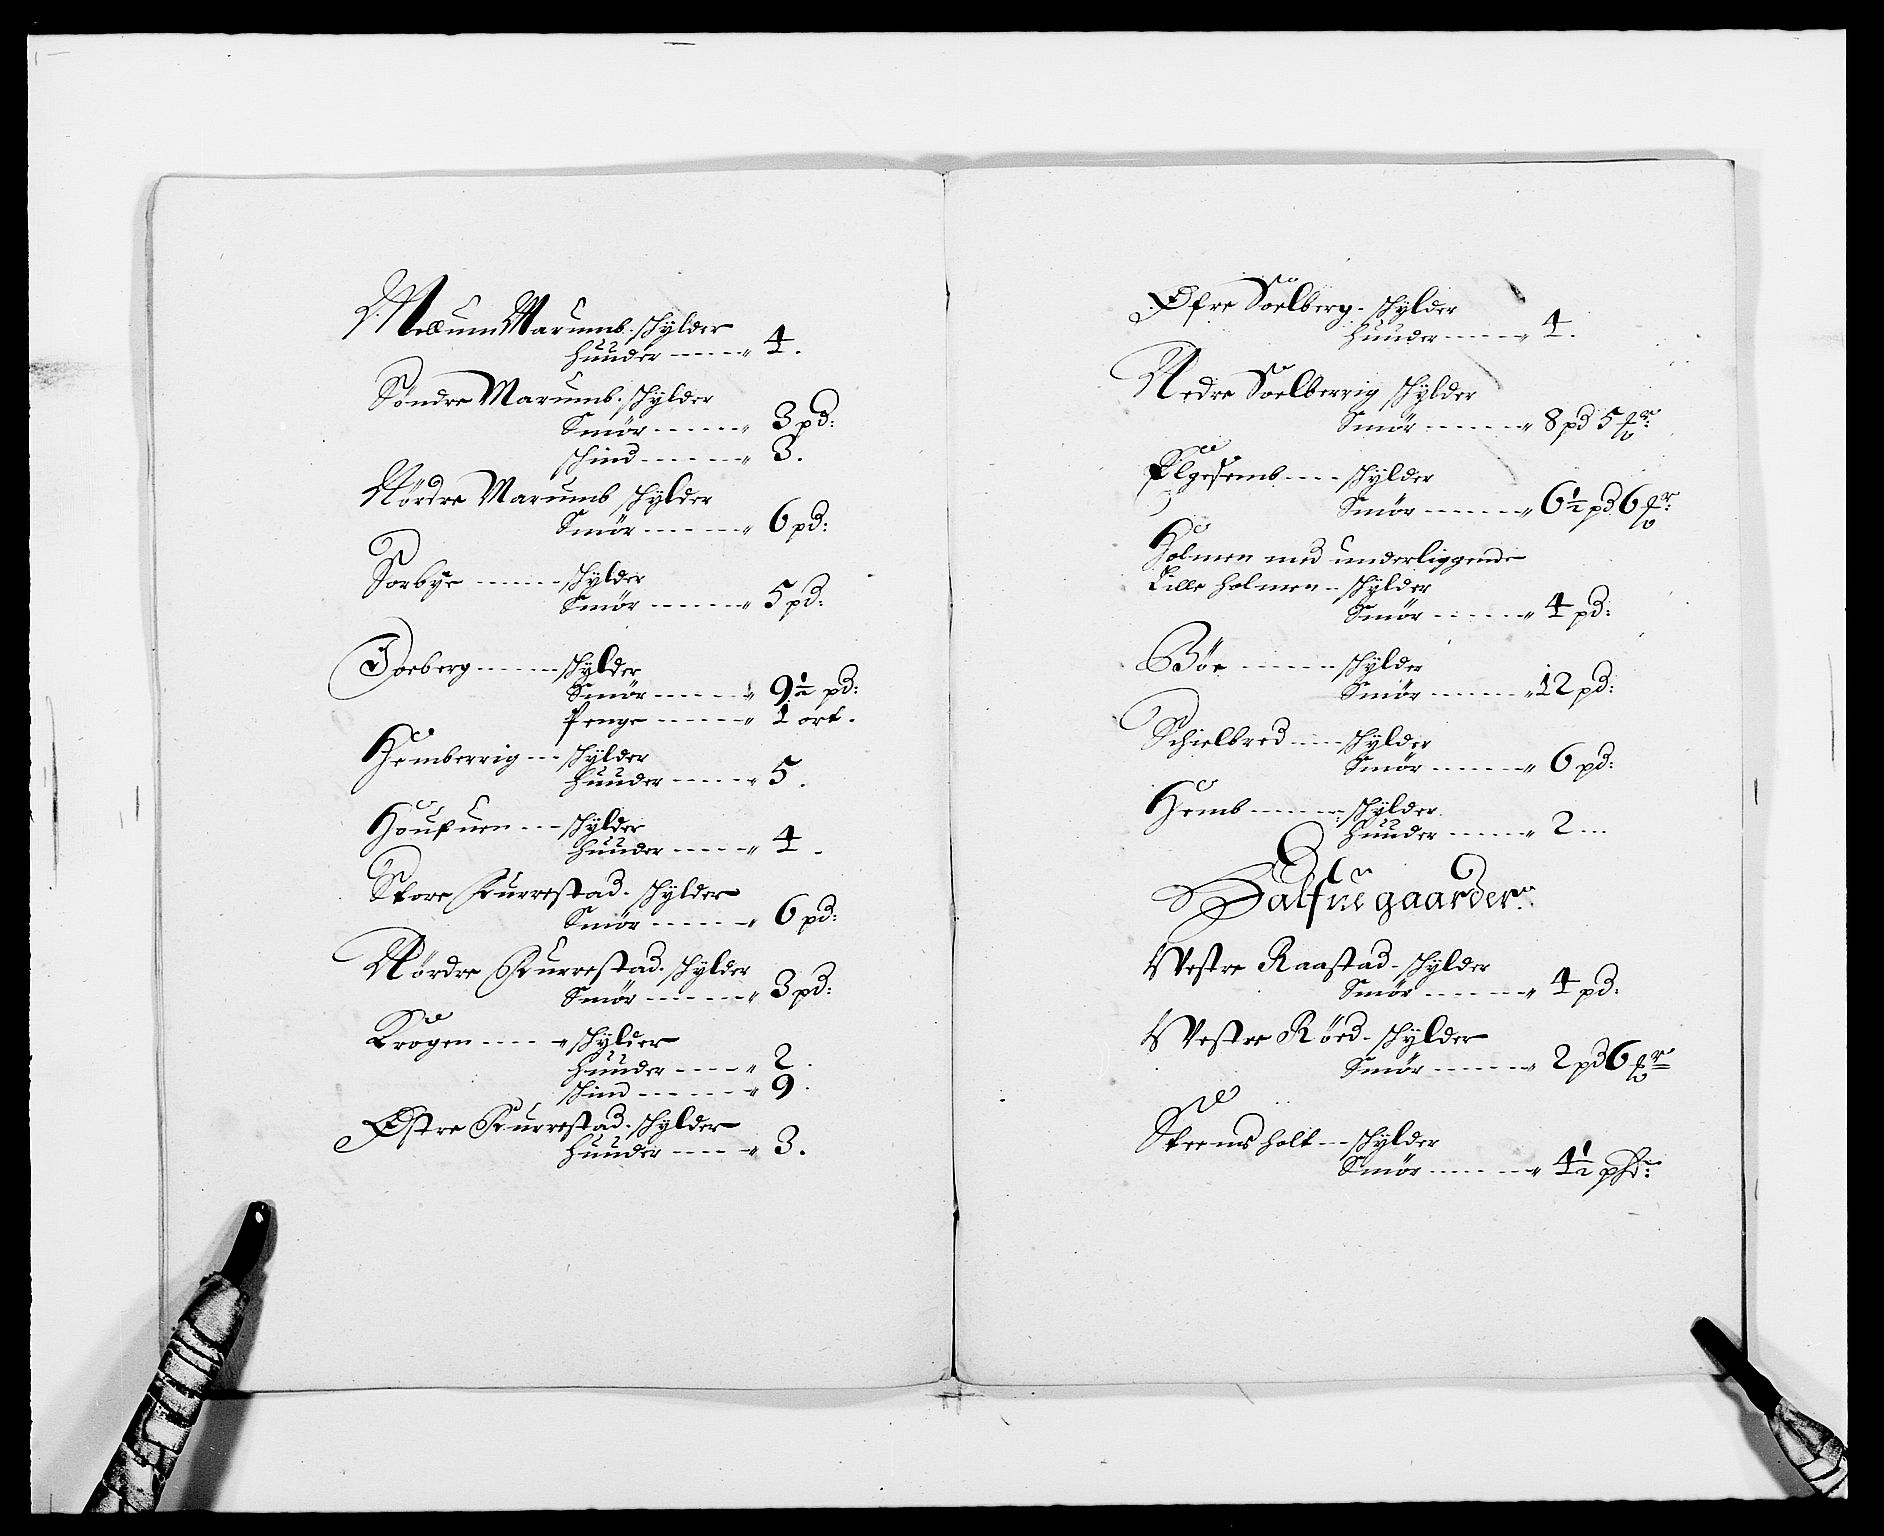 Mellum Marumb. schylder
huuder ---- " 4.
Söndre Marumb. schylder
Smör ----- " 3 pd:
schind ----- " 3.
Nördre Marumb schylder
Smör ----- " 6 pd:
Sorbye ---- schylder
Smör ----- " 5 pd:
Toeberg ---- schylder
Smör ----- " 9½ pd:
Penge ----- " 1 ort.
Hemberrig --- schylder
huuder ---- " 5.
Houfuen --- schylder
huuder ---- " 4 -
Store Kurrestad. schylder
Smör ----- " 6 pd:
Nördre Kurrestad. schylder
Smör ----- " 3 pd:
Krogen ---- " schylder
huuder ---- " 2 .
schind ----- " 9 .
Østre Kurrestad. schylder
huuder ---- " 3.
Øfre Soelberg. schylder
huuder ---- " 4.
Nedre Soelberrig schylder
Smör ----- " 8 pd 5
Elgesemb ---- schylder
Smör ----- " 6½ pd 6
Holmen med underliggende
Lille holmen -- schylder
Smör ----- " 4 pd:
Böe ------ schylder
Smör ----- " 12 pd:
Schielbred ---- schylder
Smör ----- " 6 pd:
Hemb ------ schylder
huuder ---- " 2 ---
Halfue gaarder.
Vestre Raastad - schylder
Smör ----- " 4 pd:
Vestre Röed - schylder
Smör ----- " 2 pd 6
Steensholt -- schylder
Smör ----- " 4½ pd: